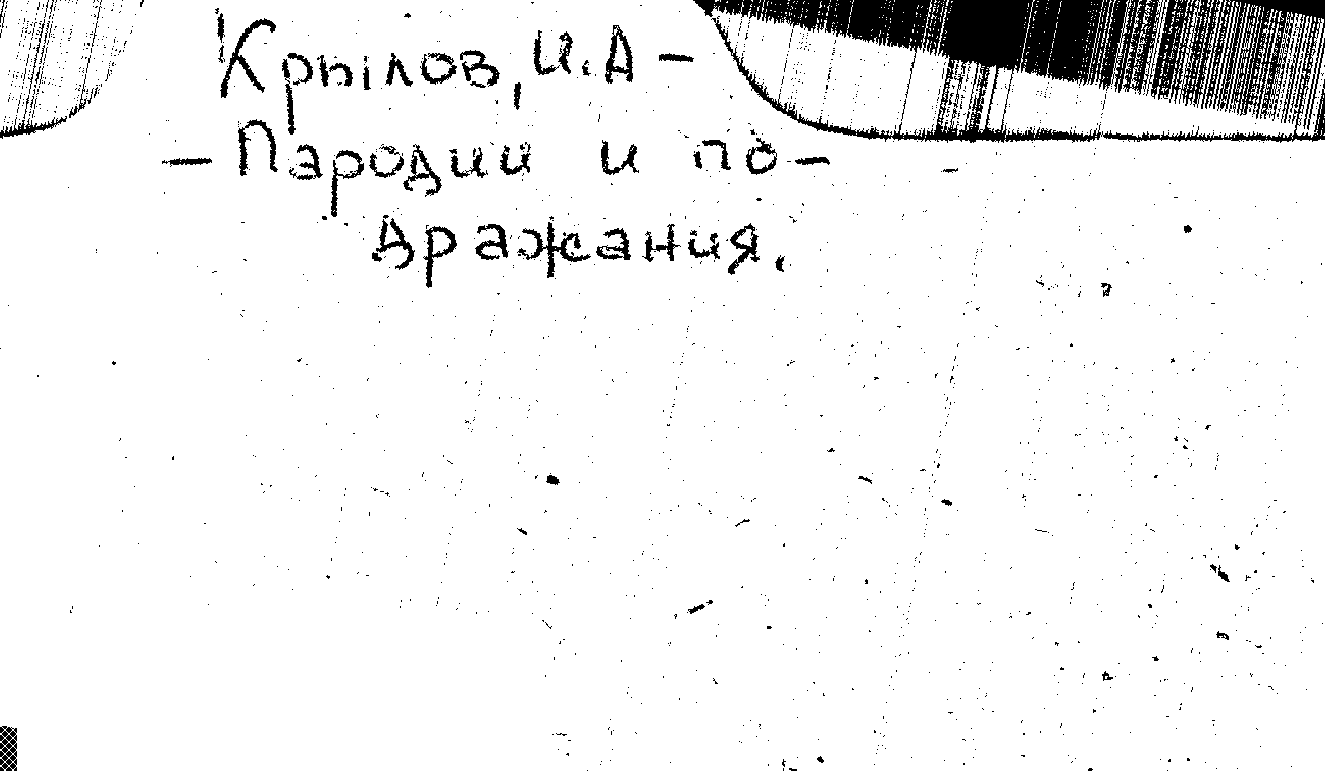 Крылов, И.А –
– Пародии и по –
дражания.